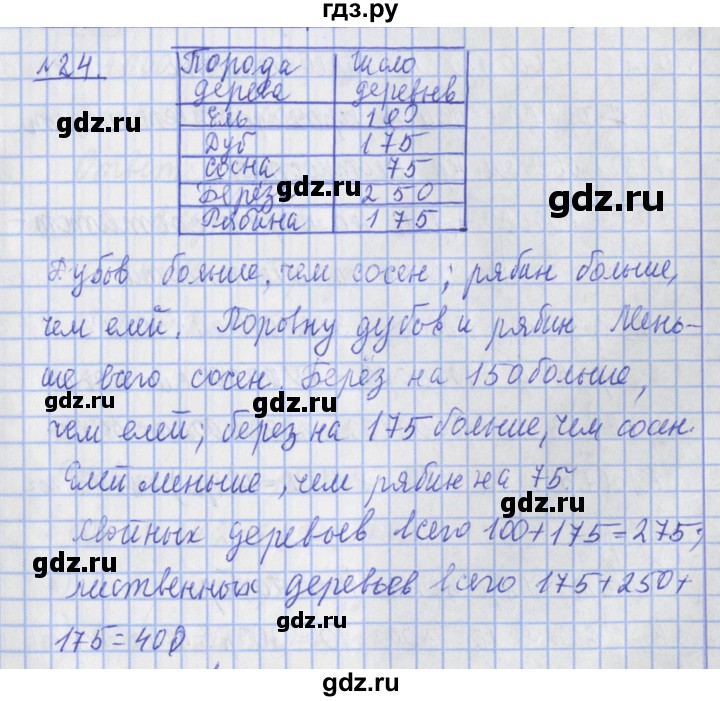 гдз.ру
№24.
Порода дерева Число деревьев
Ель 100
Дуб 175
сосна 75
Берез 250
Рябина 175
Дубов больше, чем сосен; рябин больше,
чем елей. Поровну дубов и рябин Мень-
ше всего сосен. Берёз на 150 больше,
чем елей; берез на 175 больше, чем сосен.
Елей меньше, чем рябин на 75.
Хвойных деревьев всего 100+175=275;
лиственных деревьев всего 175+250+
175=400
gdz.ru
gdz.ru
gdz.ru
gdz.ru
gdz.ru
gdz.ru
gdz.ru
gdz.ru
gdz.ru
gdz.ru